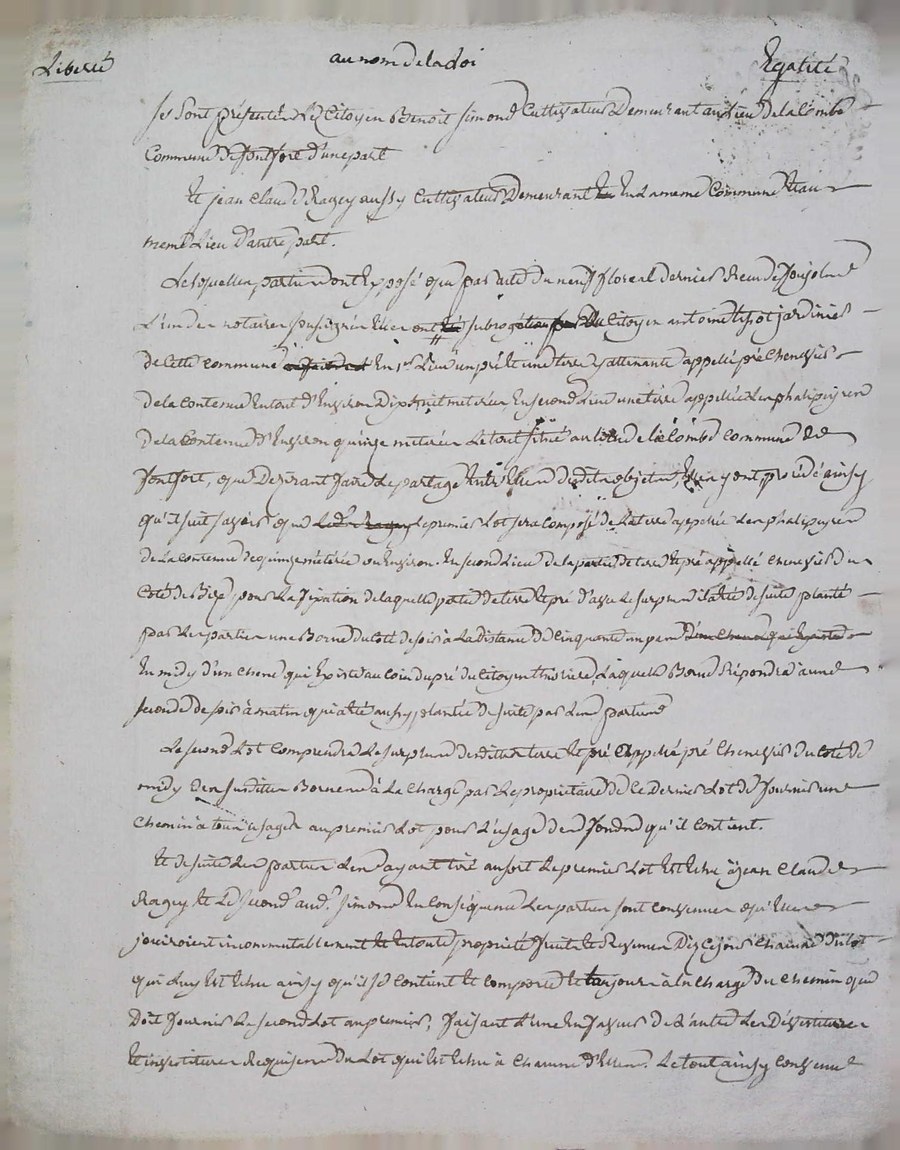 Liberté au nom de la Loi Egalité
se sont présentés Les Citoyen Benoit simond Cultivateur Demeurant au Lieu de la Combe
Commune de fontfort d'une part
Et jean claude Ragey aussy Cultivateur Demeurant En La meme Commune Et au
meme Lieu d'autre part.
Lesquelles parties ont Exposé que par acte du neuf floreal dernier Recu de
L'un des notaires soussignés Elles ont subrogation du Citoyen antoine jardinier
de Cette commune En 1er Lieu un pré Et une terre y attenante appellé pré Chenevier
de la contenue En tout d'Environ Dix huit meterées En second Lieu une terre appellée Les
de la Contenue d'Environ quinze meterées Le tout situé au Lieu de la Combe commune de
fontfort, que Dezirant faire Le partage Entr'Elles desdits objets, Elles y ont procédé ainsy
qu'il suit savoir que Led. Ragey Le premier Lot sera composé de La terre appellée Les
de La Contenue de quinze meterées ou Environ. En second Lieu de la partie de terre Et pré appellé Chenevier du
Coté de Bize, pour La fixation de laquelle partie de terre Et pré d'avec Le surplus il a été de suite planté
par Les parties une Borne du coté de soir à La distance de Cinquante un pieds
En midy d'un chene qui Existe au coin du pré du Citoyen, Laquelle Borne Répondra à une
seconde de soir à matin qui a été aussy plantée de suite par Les parties
Le second Lot Comprendra Le surplus desdites terre Et pré appellé pré Chenevier du coté de
midy Des susdittes Bornes à La charge par Le propriétaire de ce Dernier Lot de fournir un
chemin à tous usages au premier Lot pour L'usage des fonds qu'il contient.
Et de suite Les parties Les ayant tiré au sort Le premier Lot Est Echu à jean Claude
Ragey Et Le second aud. simond En Conséquence Les parties sont convenues qu'Elles
jouiroient incommutablement Et En toute propriété fruits Et Revenus Dez ce jour chacune du Lot
qui Luy Est Echu ainsy qu'il se contient Et comporte Et toujours à la Charge du Chemin que
Doit fournir Le second Lot au premier, faisant L'une En faveur de L'autre Les Dévestitures
Et investitures Requises du Lot qui Est Echu à Chacune d'Elles. Le tout ainsy convenu